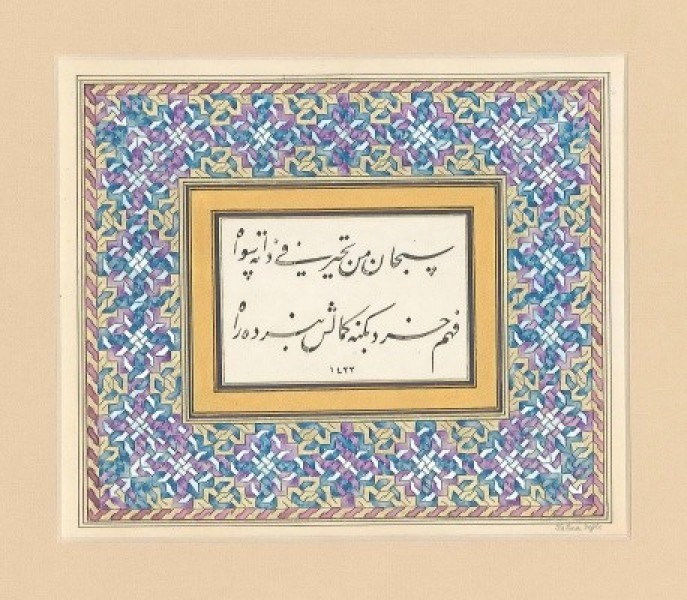 سبحان من تحیر فی ذاته سواه
فهم خرد بکنه کمالش نبرده راه
١٤٢٢